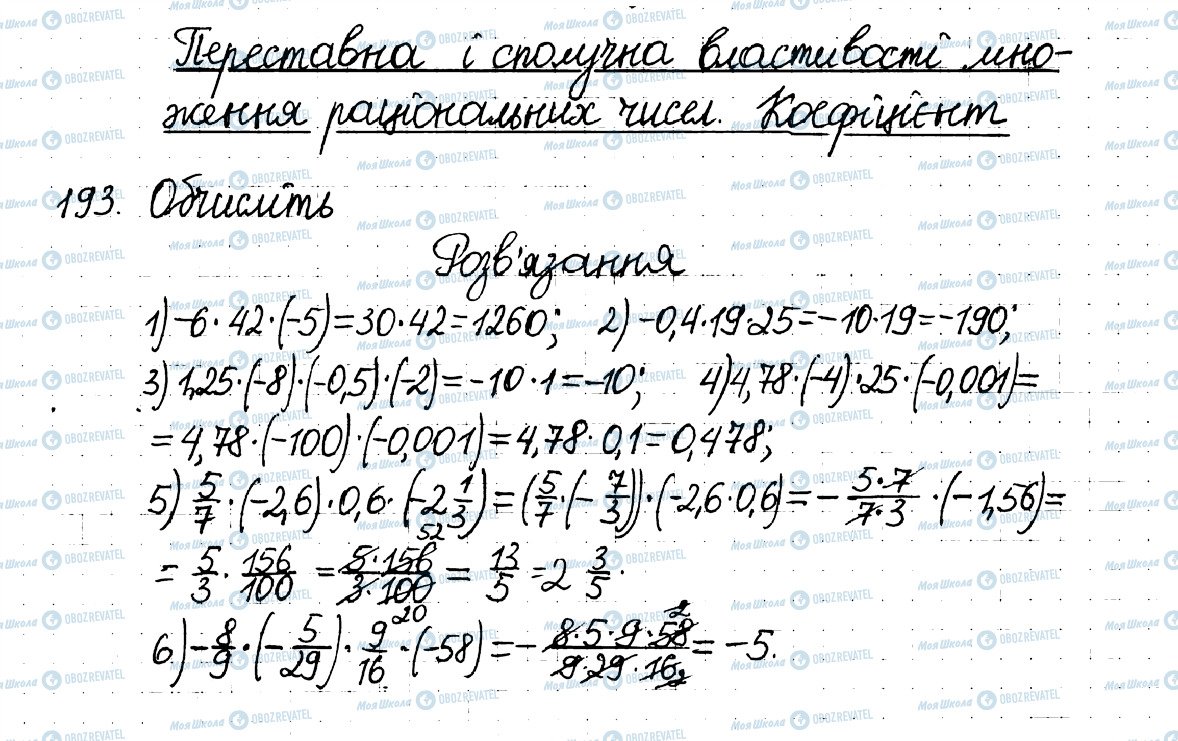 Переставна і сполучна властивості мно-
ження раціональних чисел. Коефіцієнт
193. Обчисліть
Розв'язання
1) -6·42·(-5)=30·42=1260; 2) -0,4·19·25=-10·19=-190;
3) 1,25·(-8)·(-0,5)·(-2)=-10·1=-10; 4) 4,78·(-4)·25·(-0,001)=
=4,78·(-100)·(-0,001)=4,78·0,1=0,478;
5) 5/7·(-2,6)·0,6·(-2 1/3)=(5/7·(-7/3))·(-2,6·0,6)=-5·7/7·3·(-1,56)=
=5/3·156/100=5·156 52/3·100 20=13/5=2 3/5.
6) -8/9·(-5/29)·9/16·(-58)=-8·5·9·58 2/9·29·16 2=-5.
МояШкола OBOZREVATEL